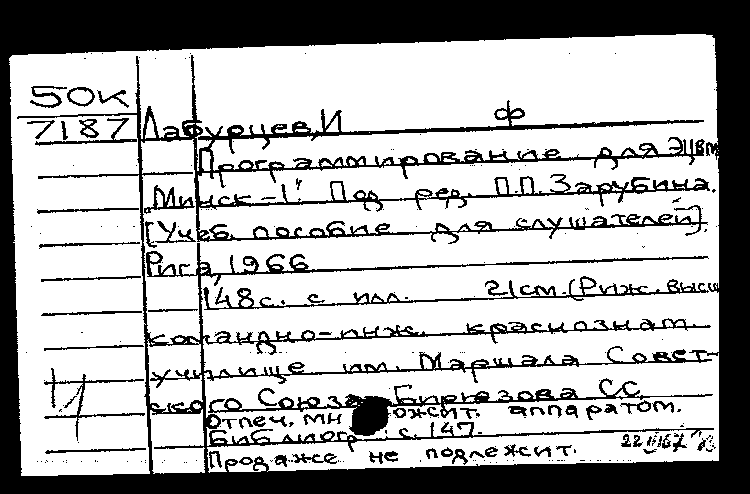 50К
7187
Лабурцев, И ф
Программирование для ЭЦВМ
"Минск-1". Под ред. П.П. Зарубина.
[Учеб. пособие для слушателей]
Рига, 1966
148 с. с илл. 21 см. (Риж. высш
командно-инж. краснознам.
училище им. Маршала Совет-
ского Союза Бирюзова СС
Отпеч. мн ожит. аппаратом.
Библиогр : с. 147.
Продаже не подлежит.